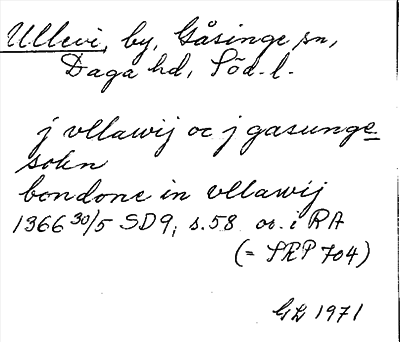 Ullevi, by, Gåsinge sn,
Daga hd, Söd. l.
j vllawij oc j gasunge
sokn
bondone in vllawij
1366 30/5 SD9, s.58 or. i RA
(= SRP 704)
GB 1971